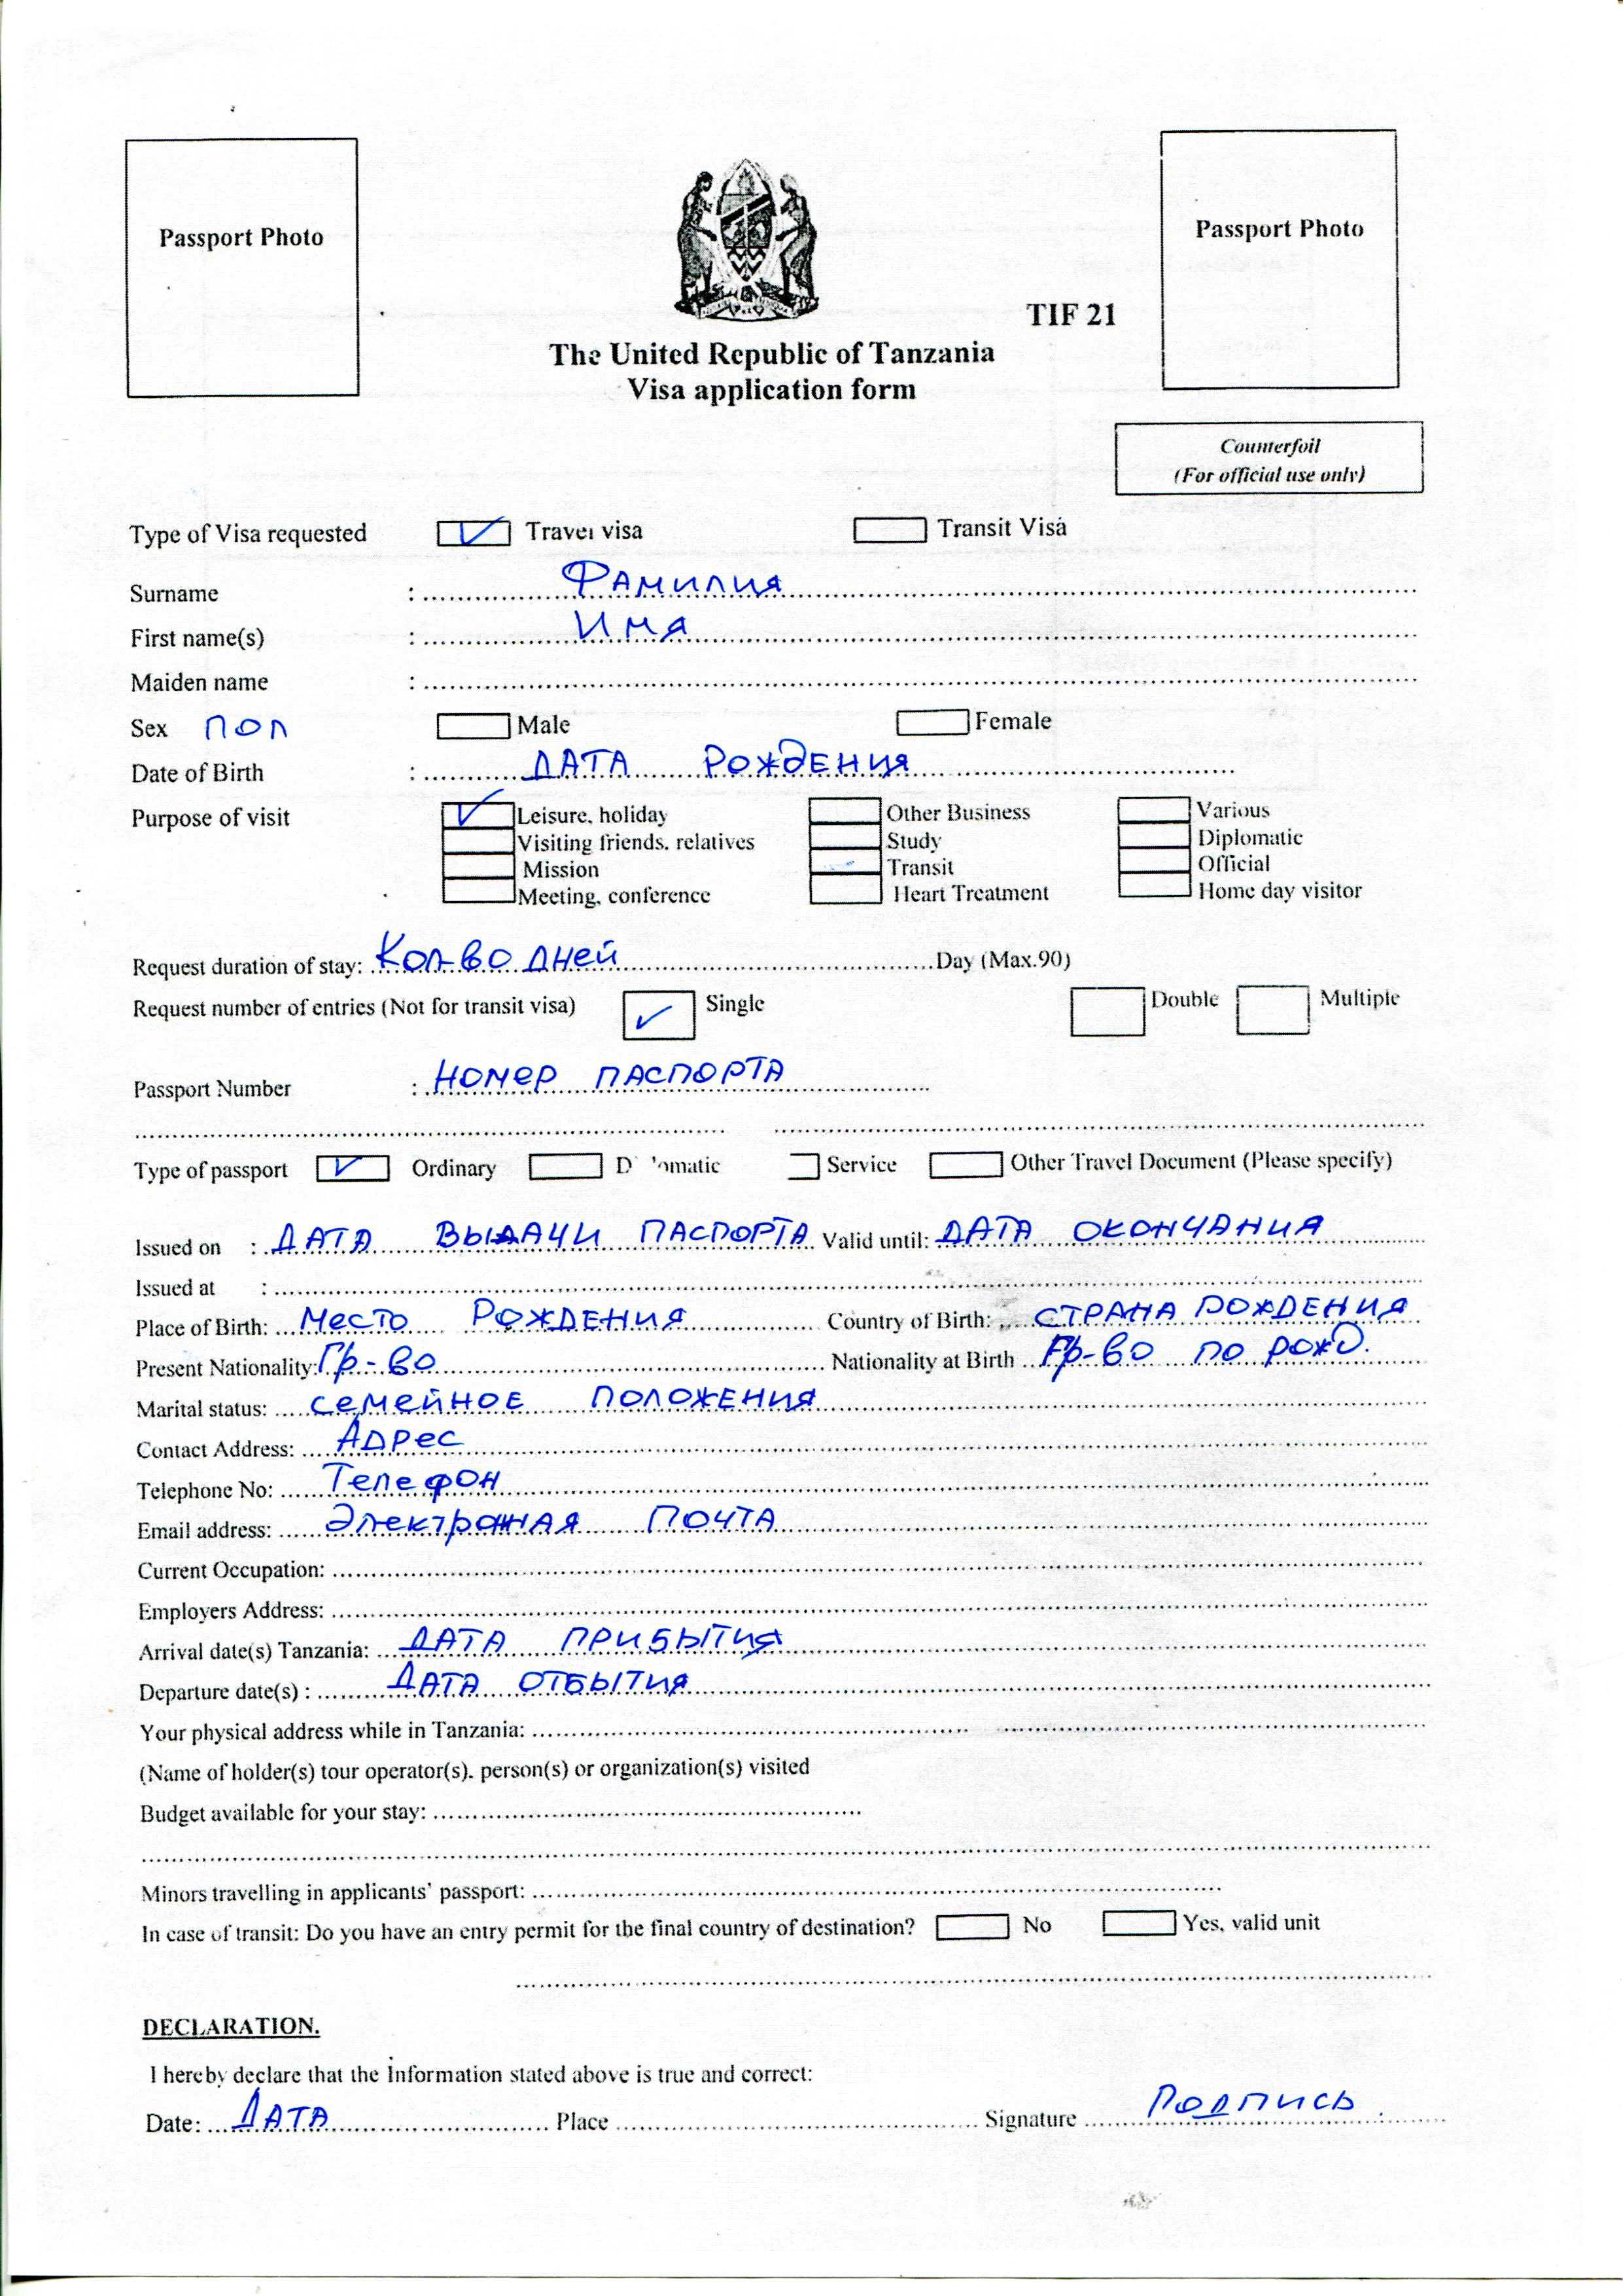 Passport Photo
Passport Photo
TIF 21
The United Republic of Tanzania
Visa application form
Counterfoil
(For official use only)
Type of Visa requested Travel visa Transit Visa
Surname : Фамилия
First name(s) : Имя
Maiden name :
Sex пол Male Female
Date of Birth : ДАТА РОЖДЕНИЯ
Purpose of visit Leisure, holiday Other Business Various
Visiting friends, relatives Study Diplomatic
Mission Transit Official
Meeting, conference Heart Treatment Home day visitor
Request duration of stay: Кол-во дней Day (Max.90)
Request number of entries (Not for transit visa) Single Double Multiple
Passport Number : НОМЕР ПАСПОРТА
Type of passport Ordinary D omatic Service Other Travel Document (Please specify)
Issued on : ДАТА ВЫДАЧИ ПАСПОРТА Valid until: ДАТА ОКОНЧАНИЯ
Issued at :
Place of Birth: Место РОЖДЕНИЯ Country of Birth: СТРАНА РОЖДЕНИЯ
Present Nationality: Гр-во Nationality at Birth Гр-во по рожд.
Marital status: семейное ПОЛОЖЕНИЯ
Contact Address: Адрес
Telephone No: Телефон
Email address: Электронная ПОЧТА
Current Occupation:
Employers Address:
Arrival date(s) Tanzania: ДАТА ПРИБЫТИЯ
Departure date(s) : ДАТА ОТБЫТИЯ
Your physical address while in Tanzania:
(Name of holder(s) tour operator(s). person(s) or organization(s) visited
Budget available for your stay:
Minors travelling in applicants' passport:
In case of transit: Do you have an entry permit for the final country of destination? No Yes, valid unit
DECLARATION.
I hereby declare that the Information stated above is true and correct:
Date: ДАТА Place Signature Подпись